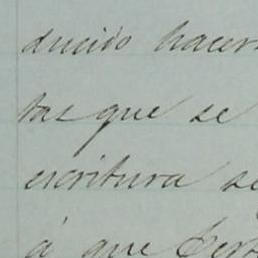 ducido hacer
tas que se
escritura se
á que